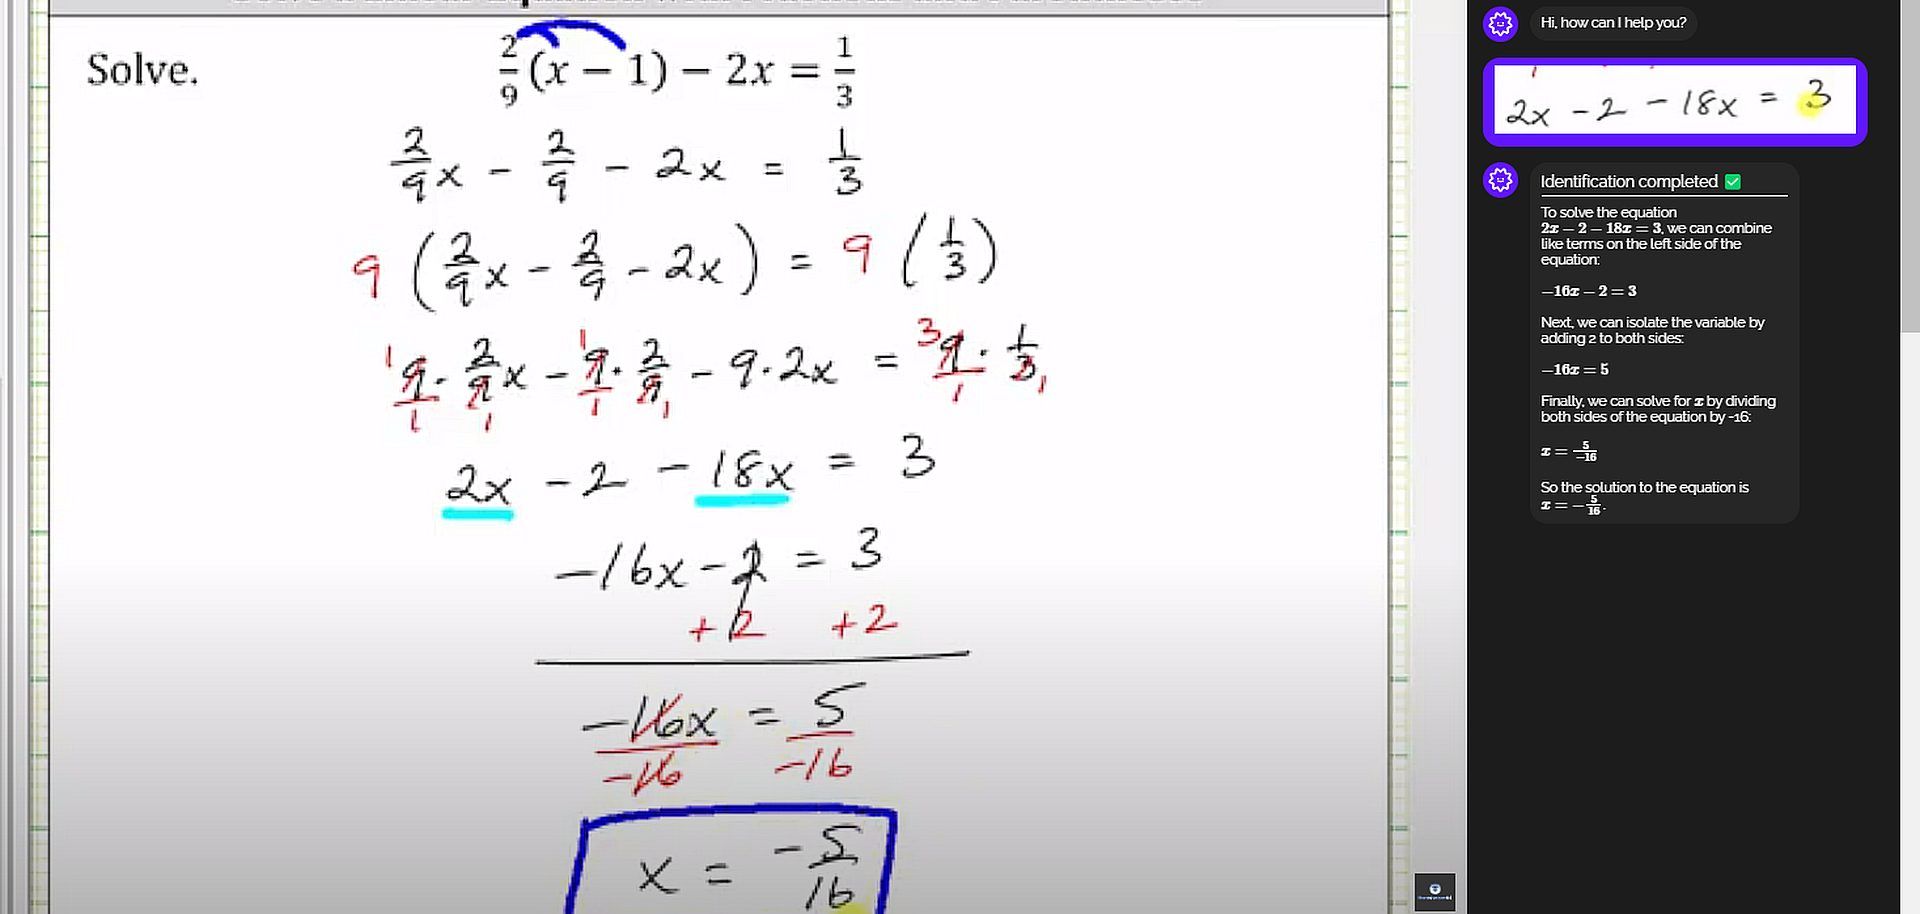 Solve.
2/9 (x − 1) − 2x = 1/3
2/9 x − 2/9 − 2x = 1/3
9 ( 2/9 x − 2/9 − 2x ) = 9 ( 1/3 )
1 9/1 · 2/9 1 x − 1 9/1 · 2/9 1 − 9 · 2x = 3 9/1 · 1/3 1
2x − 2 − 18x = 3
−16x − 2 = 3
+2 +2
−16x = 5
−16 −16
x = −5/16
Hi, how can I help you?
2x − 2 − 18x = 3
Identification completed ✅
To solve the equation
2x − 2 − 18x = 3, we can combine
like terms on the left side of the
equation:
−16x − 2 = 3
Next, we can isolate the variable by
adding 2 to both sides:
−16x = 5
Finally, we can solve for x by dividing
both sides of the equation by -16:
x = 5/−16
So the solution to the equation is
x = −5/16.